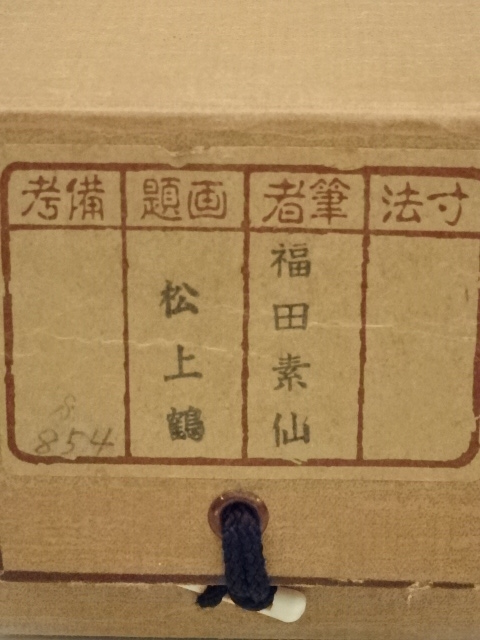 寸法
筆者
福田素仙
画題
松上鶴
備考
8
854